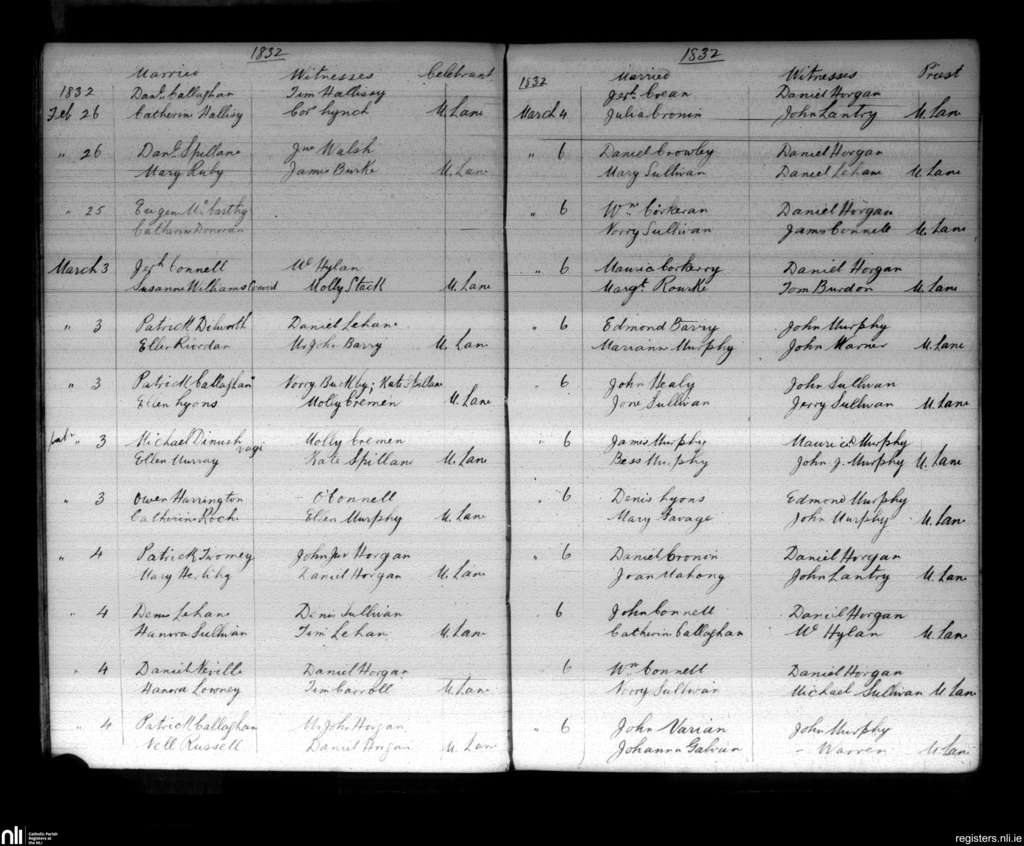 1832
Married Witnesses Celebrant
1832 Danl. Callaghan Tim Hallissy
Feb 26 Catherin Hallisy Cor Lynch M. Lane
" 26 Danl. Spillane Jno Walsh
Mary Ruby James Burke M. Lane
" 25 Eugene McCarthy
Catherin Donovan
March 3 Jerh Connell Mc Hylan
Susanne Williams Molly Stack M. Lane
" 3 Patrick Dilworth Daniel Lehane
Ellen Riordan Mr John Barry M. Lane
" 3 Patrick Callaghan Norry Buckby; Kate Spillane
Ellen Lyons Molly Cremen M. Lane
" 3 Michael Dinush Molly Cremen
Ellen Murray Kate Spillane M. Lane
" 3 Owen Harrington O'Connell
Catherin Roche Ellen Murphy M. Lane
" 4 Patrick Twomey John Jnr Horgan
Mary Herlihy Daniel Horgan M. Lane
" 4 Denis Lehane Denis Sullivan
Hanora Sullivan Tim Lehan M. Lane
" 4 Daniel Neville Daniel Horgan
Hanora Lowney Tim Carroll M. Lane
" 4 Patrick Callaghan Mr John Horgan
Nell Russell Daniel Horgan M. Lane
1832
1832 Married Witnesses Priest
Jerh. Crean Daniel Horgan
March 4 Julia Cronin John Lantry M. Lane
" 6 Daniel Crowley Daniel Horgan
Mary Sullivan Daniel Lehane M. Lane
" 6 Wm Corkeran Daniel Horgan
Norry Sullivan James Connell M. Lane
" 6 Maurice Corkerry Daniel Horgan
Margt. Rourke Tom Burdon M. Lane
" 6 Edmond Barry John Murphy
Mariann Murphy John Warner M. Lane
6 John Healy John Sullivan
Jone Sullivan Jerry Sullivan M. Lane
" 6 James Murphy Maurice Murphy
Bess Murphy John J. Murphy M. Lane
" 6 Denis Lyons Edmond Murphy
Mary Savage John Murphy M. Lane
" 6 Daniel Cronin Daniel Horgan
Joan Mahony John Lantry M. Lane
6 John Connell Daniel Horgan
Catherin Callaghan Mc Hylan M. Lane
6 Wm Connell Daniel Horgan
Norry Sullivan Michael Sullivan M Lane
" 6 John Varian John Murphy
Johanna Galvan - Warren M Lane
nli Catholic Parish
Registers at
the NLI
registers.nli.ie